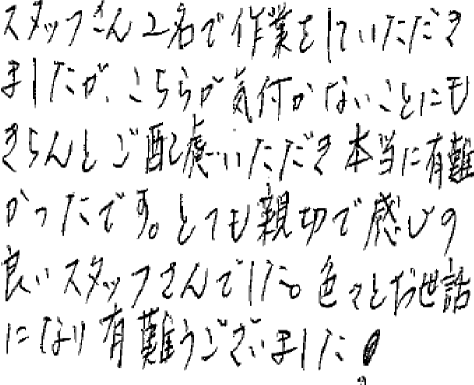 スタッフさん2名で作業をしていただき
ましたが、こちらが気付かないことにも
きちんとご配慮いただき本当に有難
かったです。とても親切で感じの
良いスタッフさんでした。色々とお世話
になり有難うございました!